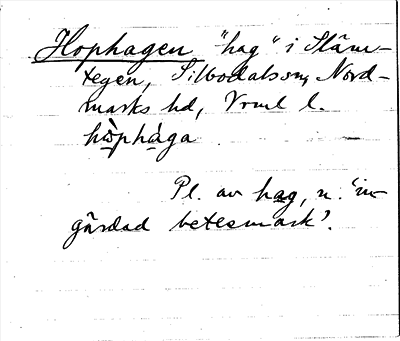 Hophagen "hag" i Släm-
tegen, Silbodals sn, Nord-
marks hd, Vrml l.
hòphàga
Pl. av hag, n. 'in-
gärdad betesmark'.